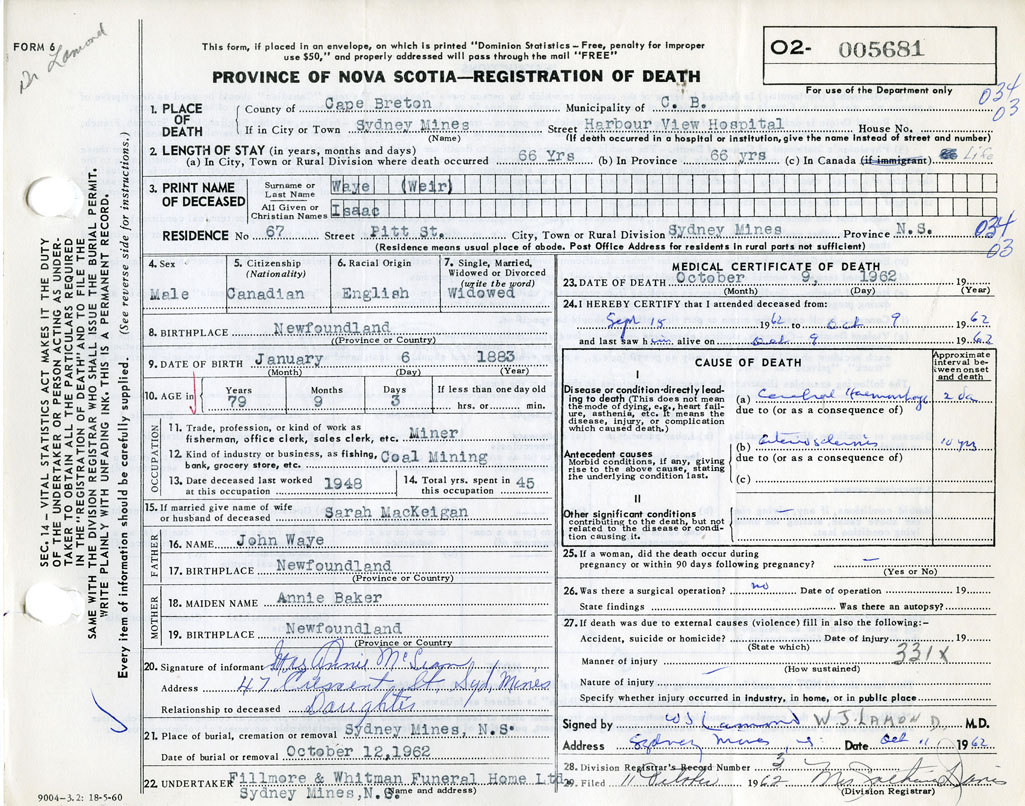 FORM 6
Dr Lamond
This form, if placed in an envelope, on which is printed "Dominion Statistics – Free, penalty for improper
use $50," and properly addressed will pass through the mail "FREE"
PROVINCE OF NOVA SCOTIA—REGISTRATION OF DEATH
O2- 005681
For use of the Department only
034
03
1. PLACE OF DEATH
County of Cape Breton Municipality of C. B.
If in City or Town Sydney Mines Street Harbour View Hospital House No.
(Name) (If death occurred in a hospital or institution, give the name instead of street and number)
2. LENGTH OF STAY (in years, months and days)
(a) In City, Town or Rural Division where death occurred 66 Yrs (b) In Province 66 yrs (c) In Canada (if immigrant) 66 Life
3. PRINT NAME OF DECEASED
Surname or Last Name Waye (Weir)
All Given or Christian Names Isaac
RESIDENCE No 67 Street Pitt St. City, Town or Rural Division Sydney Mines Province N.S.
034
03
(Residence means usual place of abode. Post Office Address for residents in rural parts not sufficient)
4. Sex Male
5. Citizenship (Nationality) Canadian
6. Racial Origin English
7. Single, Married, Widowed or Divorced (write the word) Widowed
8. BIRTHPLACE Newfoundland
(Province or Country)
9. DATE OF BIRTH January 6 1883
(Month) (Day) (Year)
10. AGE in Years 79 Months 9 Days 3 If less than one day old hrs. or min.
OCCUPATION
11. Trade, profession, or kind of work as
fisherman, office clerk, sales clerk, etc. Miner
12. Kind of industry or business, as fishing,
bank, grocery store, etc. Coal Mining
13. Date deceased last worked at this occupation 1948
14. Total yrs. spent in this occupation 45
15. If married give name of wife
or husband of deceased Sarah MacKeigan
FATHER
16. NAME John Waye
17. BIRTHPLACE Newfoundland
(Province or Country)
MOTHER
18. MAIDEN NAME Annie Baker
19. BIRTHPLACE Newfoundland
(Province or Country
20. Signature of informant Mrs Annie McLean
Address 47 Crescent St, Syd, Mines
Relationship to deceased Daughter
21. Place of burial, cremation or removal Sydney Mines, N.S.
Date of burial or removal October 12, 1962
22. UNDERTAKER Fillmore & Whitman Funeral Home Ltd
Sydney Mines, N.S. (Name and address)
9004-3.2: 18-5-60
MEDICAL CERTIFICATE OF DEATH
23. DATE OF DEATH October 9, 1962
(Month) (Day) (Year)
24. I HEREBY CERTIFY that I attended deceased from:
Sept 18 1962 to Oct 9 1962
and last saw him alive on Oct 9 1962
CAUSE OF DEATH
Approximate interval between onset and death
I
Disease or condition directly leading to death (This does not mean the mode of dying, e.g., heart failure, asthenia, etc. It means the disease, injury, or complication which caused death.)
(a) Cerebral Haemorrhage 2 da
due to (or as a consequence of)
Antecedent causes
Morbid conditions, if any, giving rise to the above cause, stating the underlying condition last.
(b) Arteriosclerosis 10 yrs
due to (or as a consequence of)
(c)
II
Other significant conditions
contributing to the death, but not related to the disease or condition causing it. —
25. If a woman, did the death occur during
pregnancy or within 90 days following pregnancy? —
(Yes or No)
26. Was there a surgical operation? no Date of operation 19
State findings Was there an autopsy?
27. If death was due to external causes (violence) fill in also the following:–
Accident, suicide or homicide? Date of injury 19
(State which)
331X
Manner of injury
(How sustained)
Nature of injury —
Specify whether injury occurred in industry, in home, or in public place
Signed by WJ Lamond W J. LAMOND, M.D.
Address Sydney Mines Date Oct 11 1962
28. Division Registrar's Record Number 3
29. Filed 11 October 1962
(Division Registrar)
SEC. 14 – VITAL STATISTICS ACT MAKES IT THE DUTY
OF THE UNDERTAKER OR PERSON ACTING AS UNDER-
TAKER TO OBTAIN ALL THE PARTICULARS REQUIRED
IN THE "REGISTRATION OF DEATH" AND TO FILE THE
SAME WITH THE DIVISION REGISTRAR WHO SHALL ISSUE THE BURIAL PERMIT.
WRITE PLAINLY WITH UNFADING INK. THIS IS A PERMANENT RECORD.
Every item of information should be carefully supplied. (See reverse side for instructions.)